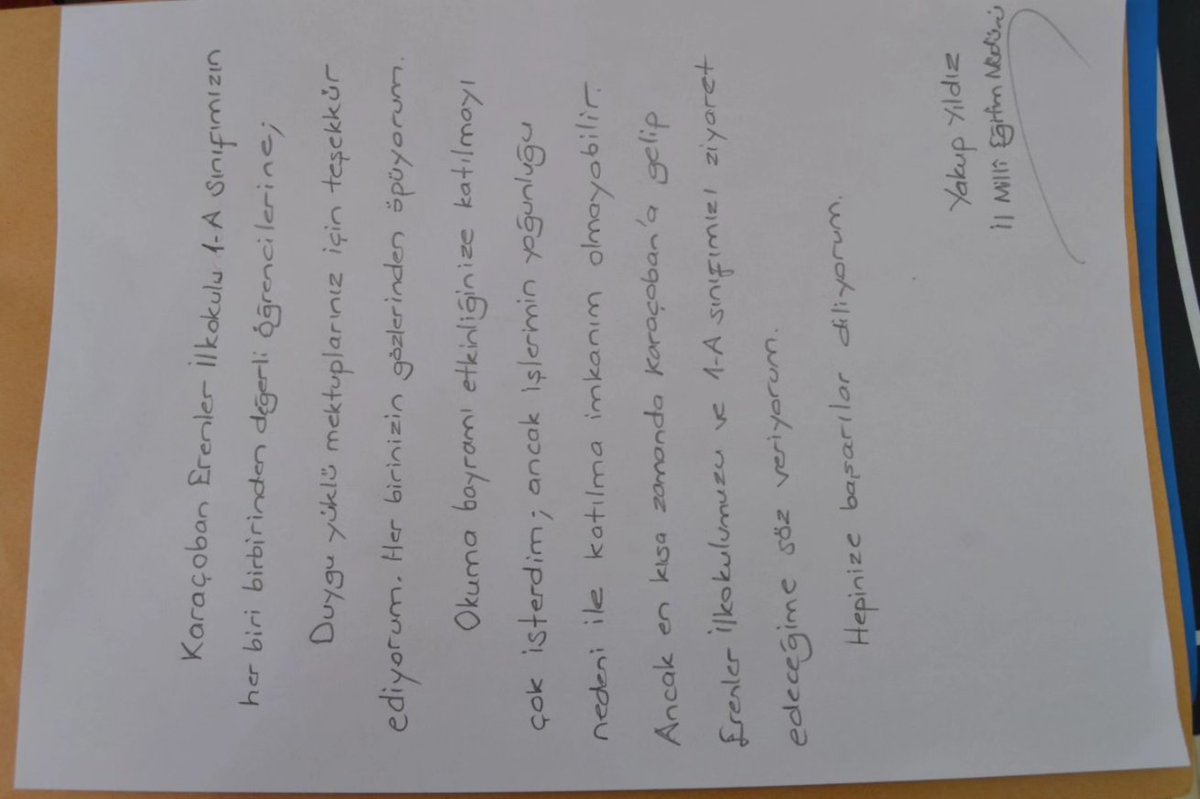 Karaçoban Erenler İlkokulu 1-A sınıfımızın
her biri birbirinden değerli öğrencilerine;
Duygu yüklü mektuplarınız için teşekkür
ediyorum. Her birinizin gözlerinden öpüyorum.
Okuma bayramı etkinliğinize katılmayı
çok isterdim; ancak işlerimin yoğunluğu
nedeni ile katılma imkanım olmayabilir.
Ancak en kısa zamanda Karaçoban'a gelip
Erenler İlkokulumuzu ve 1-A sınıfımızı ziyaret
edeceğime söz veriyorum.
Hepinize başarılar diliyorum.
Yakup Yıldız
İl Milli Eğitim Müdürü